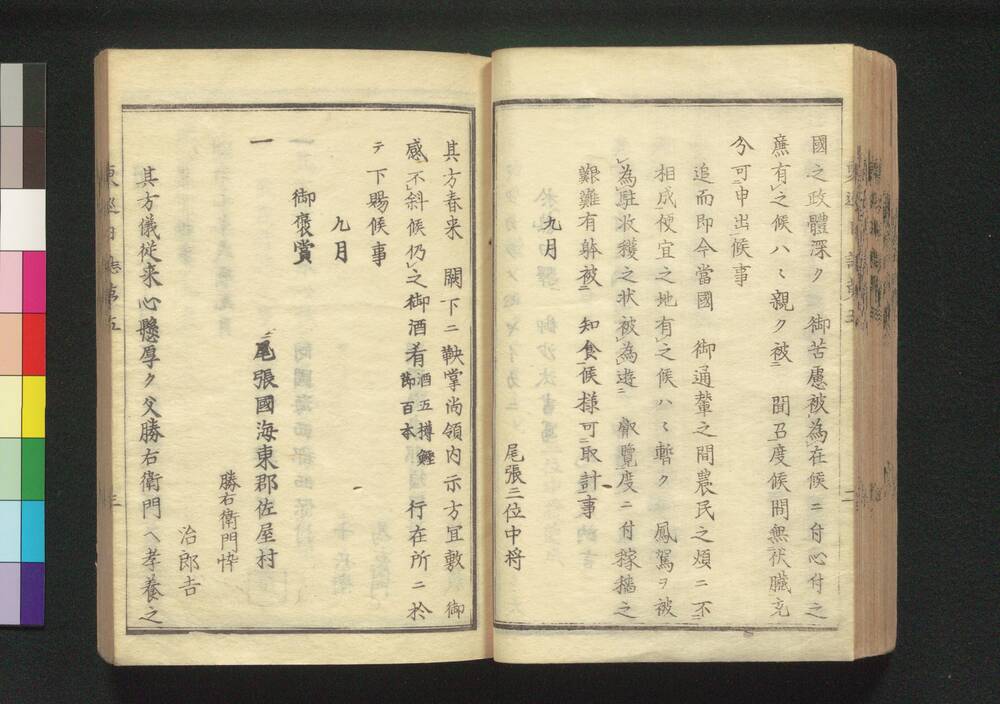 國之政體深ク 御苦慮被為在候ニ付心付之
廉有之候ハヽ親ク被 聞召度候間無伏臓充
分可申出候事
追而即今當國 御通輦之間農民之煩ニ不
相成便宜之地有之候ハヽ暫ク 鳳駕ヲ被
為駐收穫之状被為遊 叡覽度ニ付稼穡之
艱難有躰被 知食候様可取計事
九月
尾張三位中将
其方春来 闕下ニ鞅掌尚領内示方宜敷 御
感不斜候仍之御酒肴酒五樽鰹節百本 行在所ニ於
テ下賜候事
九月
御褒賞
一
尾張國海東郡佐屋村
勝右衛門忰
治郎吉
其方儀従来心懸厚ク父勝右衛門ヘ孝養之
東巡日誌第五
三